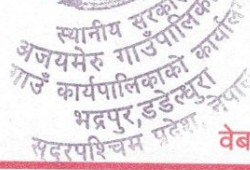 स्थानीय सरकार
अजयमेरु गाउँपालिका
गाउँ कार्यपालिकाको कार्यालय
भद्रपुर, डडेल्धुरा
सुदूरपश्चिम प्रदेश, नेपाल
वेब